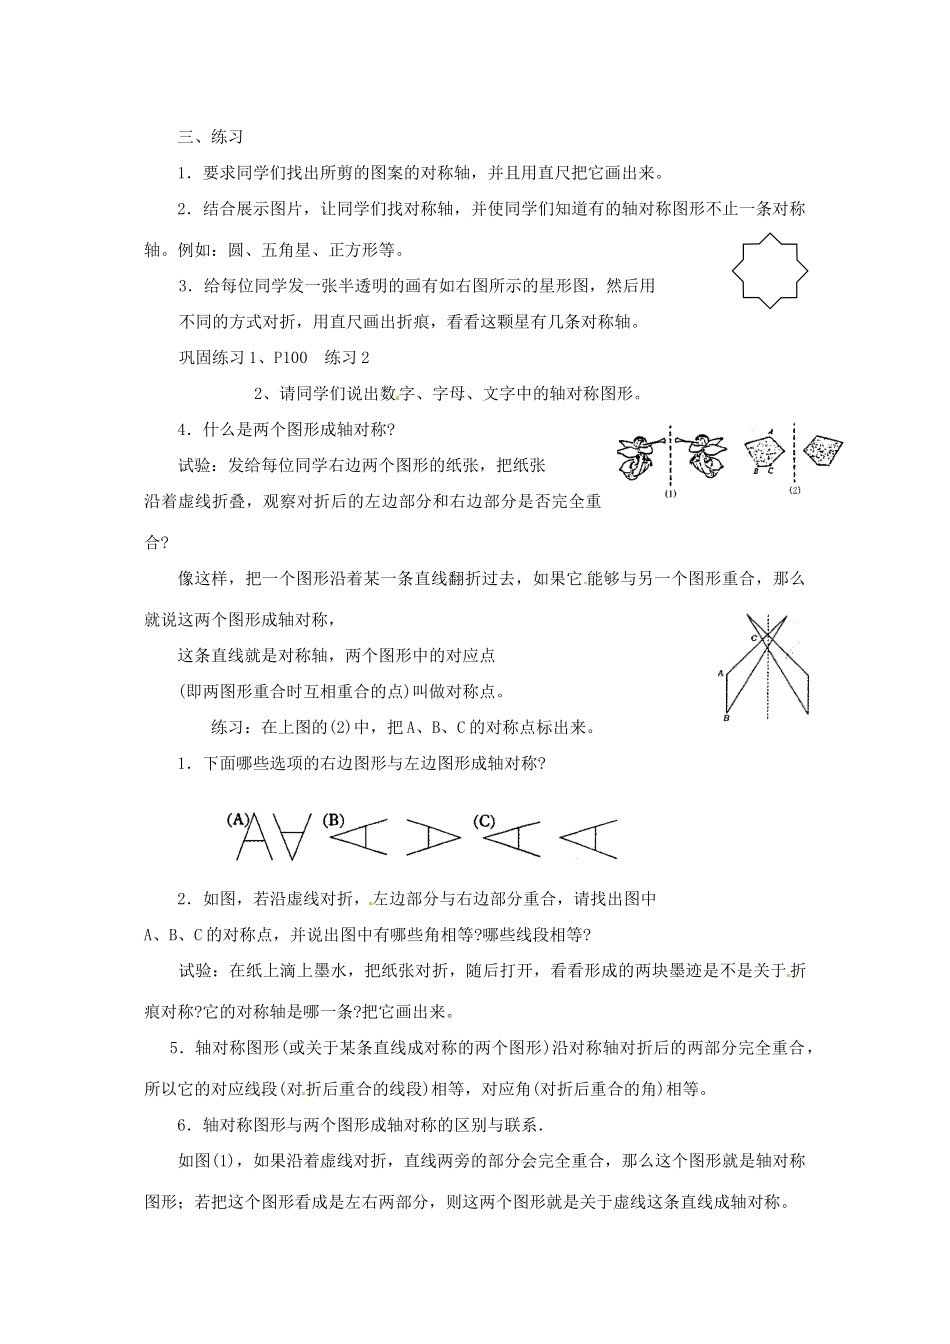 三、练习
1．要求同学们找出所剪的图案的对称轴，并且用直尺把它画出来。
2．结合展示图片，让同学们找对称轴，并使同学们知道有的轴对称图形不止一条对称
轴。例如：圆、五角星、正方形等。
3．给每位同学发一张半透明的画有如右图所示的星形图，然后用
不同的方式对折，用直尺画出折痕，看看这颗星有几条对称轴。
巩固练习 1、P100　练习 2
2、请同学们说出数字、字母、文字中的轴对称图形。
4．什么是两个图形成轴对称?
A
B C
(1)
(2)
试验：发给每位同学右边两个图形的纸张，把纸张
沿着虚线折叠，观察对折后的左边部分和右边部分是否完全重
合?
像这样，把一个图形沿着某一条直线翻折过去，如果它能够与另一个图形重合，那么
就说这两个图形成轴对称，
C
A
B
这条直线就是对称轴，两个图形中的对应点
(即两图形重合时互相重合的点)叫做对称点。
练习：在上图的(2)中，把 A、B、C 的对称点标出来。
1．下面哪些选项的右边图形与左边图形成轴对称?
(A) (B) (C)
2．如图，若沿虚线对折，左边部分与右边部分重合，请找出图中
A、B、C 的对称点，并说出图中有哪些角相等?哪些线段相等?
试验：在纸上滴上墨水，把纸张对折，随后打开，看看形成的两块墨迹是不是关于折
痕对称?它的对称轴是哪一条?把它画出来。
5．轴对称图形(或关于某条直线成对称的两个图形)沿对称轴对折后的两部分完全重合，
所以它的对应线段(对折后重合的线段)相等，对应角(对折后重合的角)相等。
6．轴对称图形与两个图形成轴对称的区别与联系．
如图(1)，如果沿着虚线对折，直线两旁的部分会完全重合，那么这个图形就是轴对称
图形；若把这个图形看成是左右两部分，则这两个图形就是关于虚线这条直线成轴对称。